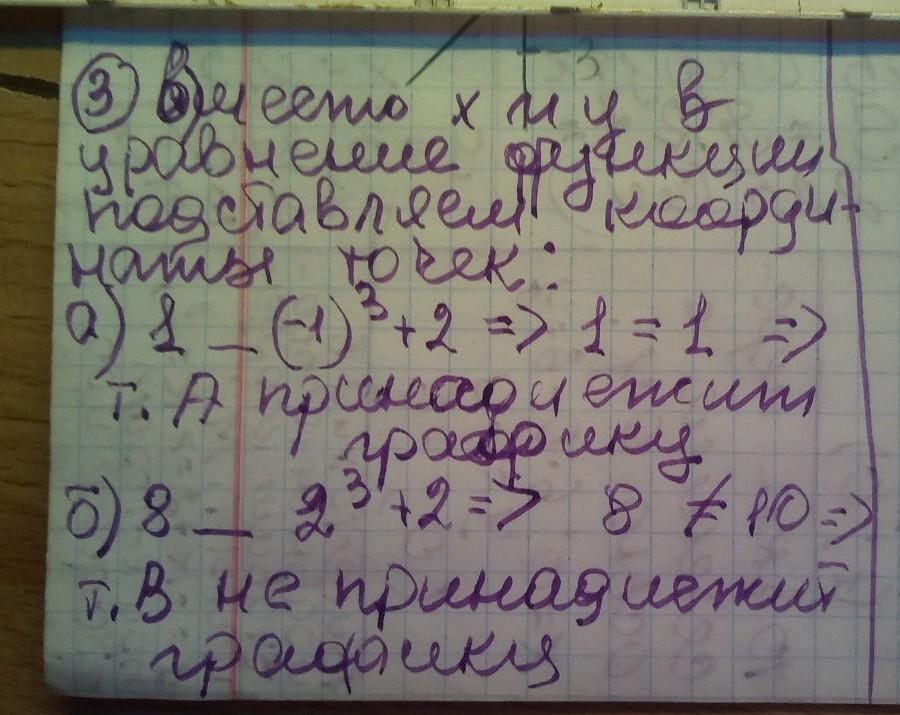 ③ Вместо х и у в
уравнение функции
подставляем коорди-
наты точек:
а) 1 _ (-1)³ + 2 => 1 = 1 =>
т. А принадлежит
графику
б) 8 _ 2³ + 2 => 8 ≠ 10 =>
т. В не принадлежит
графику